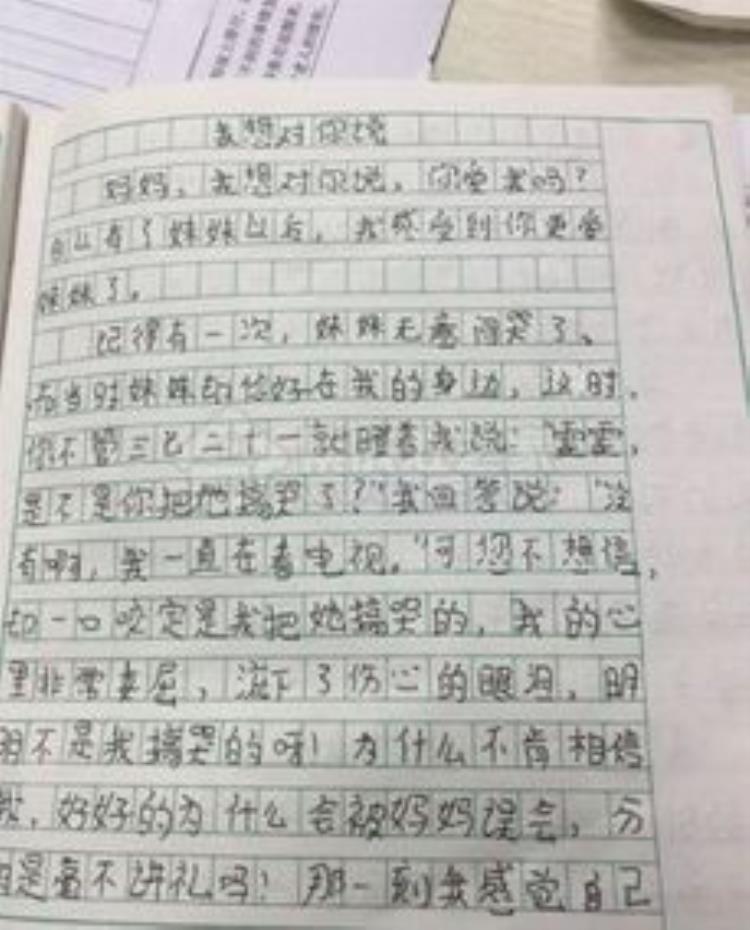 我想对你说
妈妈，我想对你说，你爱我吗？
自从有了妹妹以后，我感受到你更爱
妹妹了。
记得有一次，妹妹无意间哭了、
而当时妹妹却恰好在我的身边，这时，
你不管三七二十一就瞪着我说：“雷雷，
是不是你把他搞哭了？”我回答说：“没
有啊，我一直在看电视。”可您不想信，
却一口咬定是我把她搞哭的，我的心
里非常委屈，流下了伤心的眼泪，明
明不是我搞哭的呀！为什么不肯相信
我，好好的为什么会被妈妈误会，分
明是毫不讲礼吗！那一刻我感觉自己